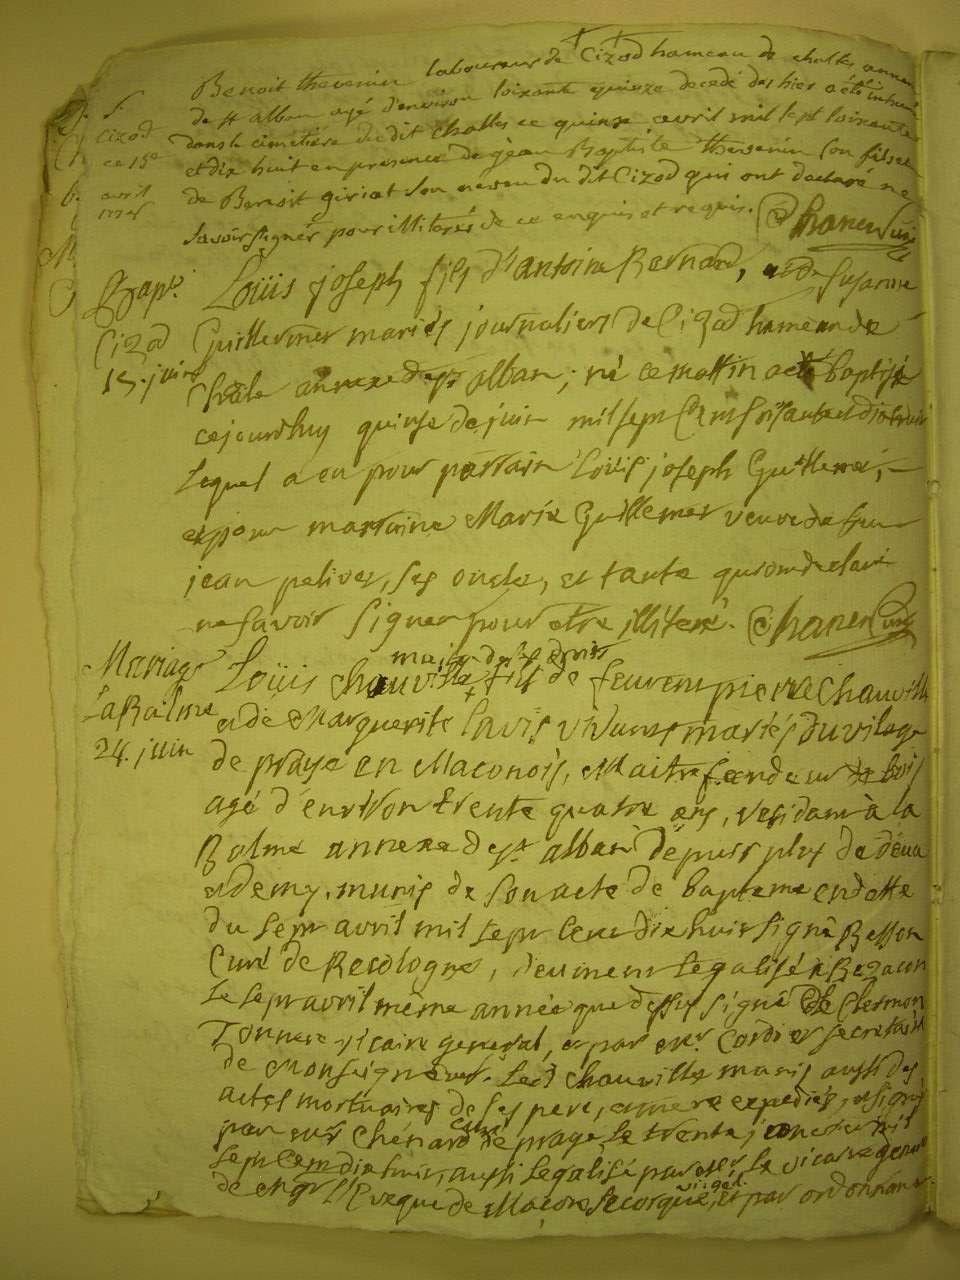 Benoit thevenin laboureur de Cizod hameau de challes annexe
de st alban agé d'environ soixante quinze decedé des hier a été inhumé
dans le cimetière du dit Challes ce quinze avril mil sept soixante
et dix huit en presence de jean Baptiste thevenin son fils et
de Benoit giriat son neveu du dit Cizod qui ont declaré ne
savoir signer pour illiterés de ce enquis et requis.
cizod
ce 15e
avril
1778
Bapt.
Cizod
15 juin
Loüis joseph fils d'antoine Bernard, et de Susanne
Guillermer mariés journaliers de Cizod hameau de
Chale annexe de st alban; né ce mattin a eté baptisé
cejourdhuy quinze de juin mil sept Cent soixante et dix huit
Lequel a eu pour parrain Loüis joseph Guillermer,
et pour marraine Marie Guillermer veuve de feu
jean pelivet, ses oncle, et tante qui ont declaré
ne savoir signer pour etre illiteré.
Mariage
La Balme
24. juin
majeur de ses droits
Loüis Chauville fils de feu pierre Chauville
et de Marguerite mariés du vilage
de praye en Maconois, Maitre fendeur de bois
agé d'environ trente quatre ans, residant à la
Balme annexe de st alban depuis plus de deux
et demy, munis de son acte de bapteme en datte
du sept avril mil sept Cent dix huit signé Besson
Curé de Recologne, deuement legalisé à Bezacon
le sept avril même année que dessus signé de Clermon
Tonnere vicaire general, et par mr. Cordier secretaire
de Monseigneur. Led Chauville munis aussi des
actes mortuaires de ses pere, et mere expediés, et signés
par mr Chénard Curé de praye, le trente
sept Cent dix huit, aussi legalisé par mr le vicaire general
de mgr l'Eveque de Macon et par ordonnance